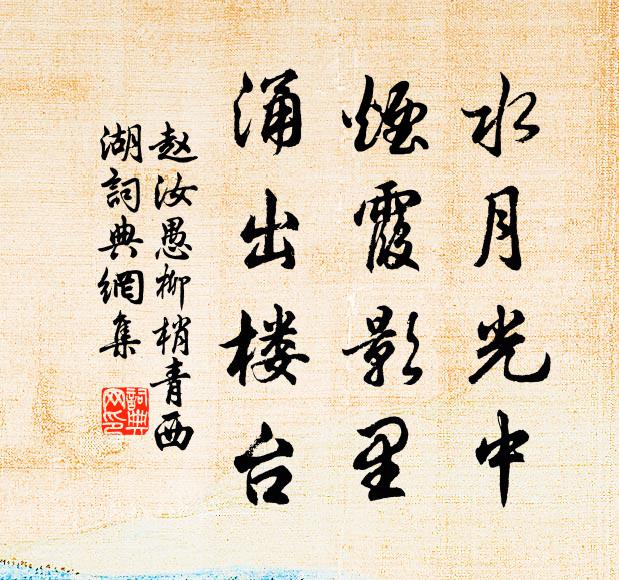 水月光中
煙霞影里
涌出楼台
赵汝愚柳梢青西
湖詞典網集
詞典网印